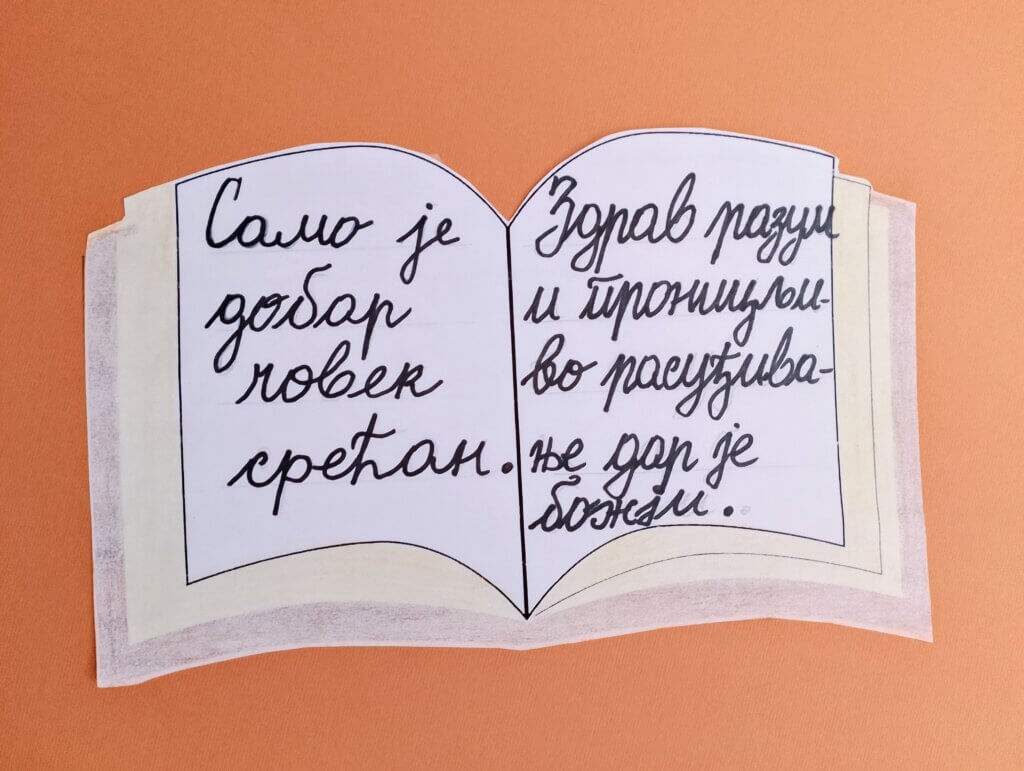 Само је
добар
човек
срећан.
Здрав разум
и проницљи-
во расуђива-
ње дар је
божји.